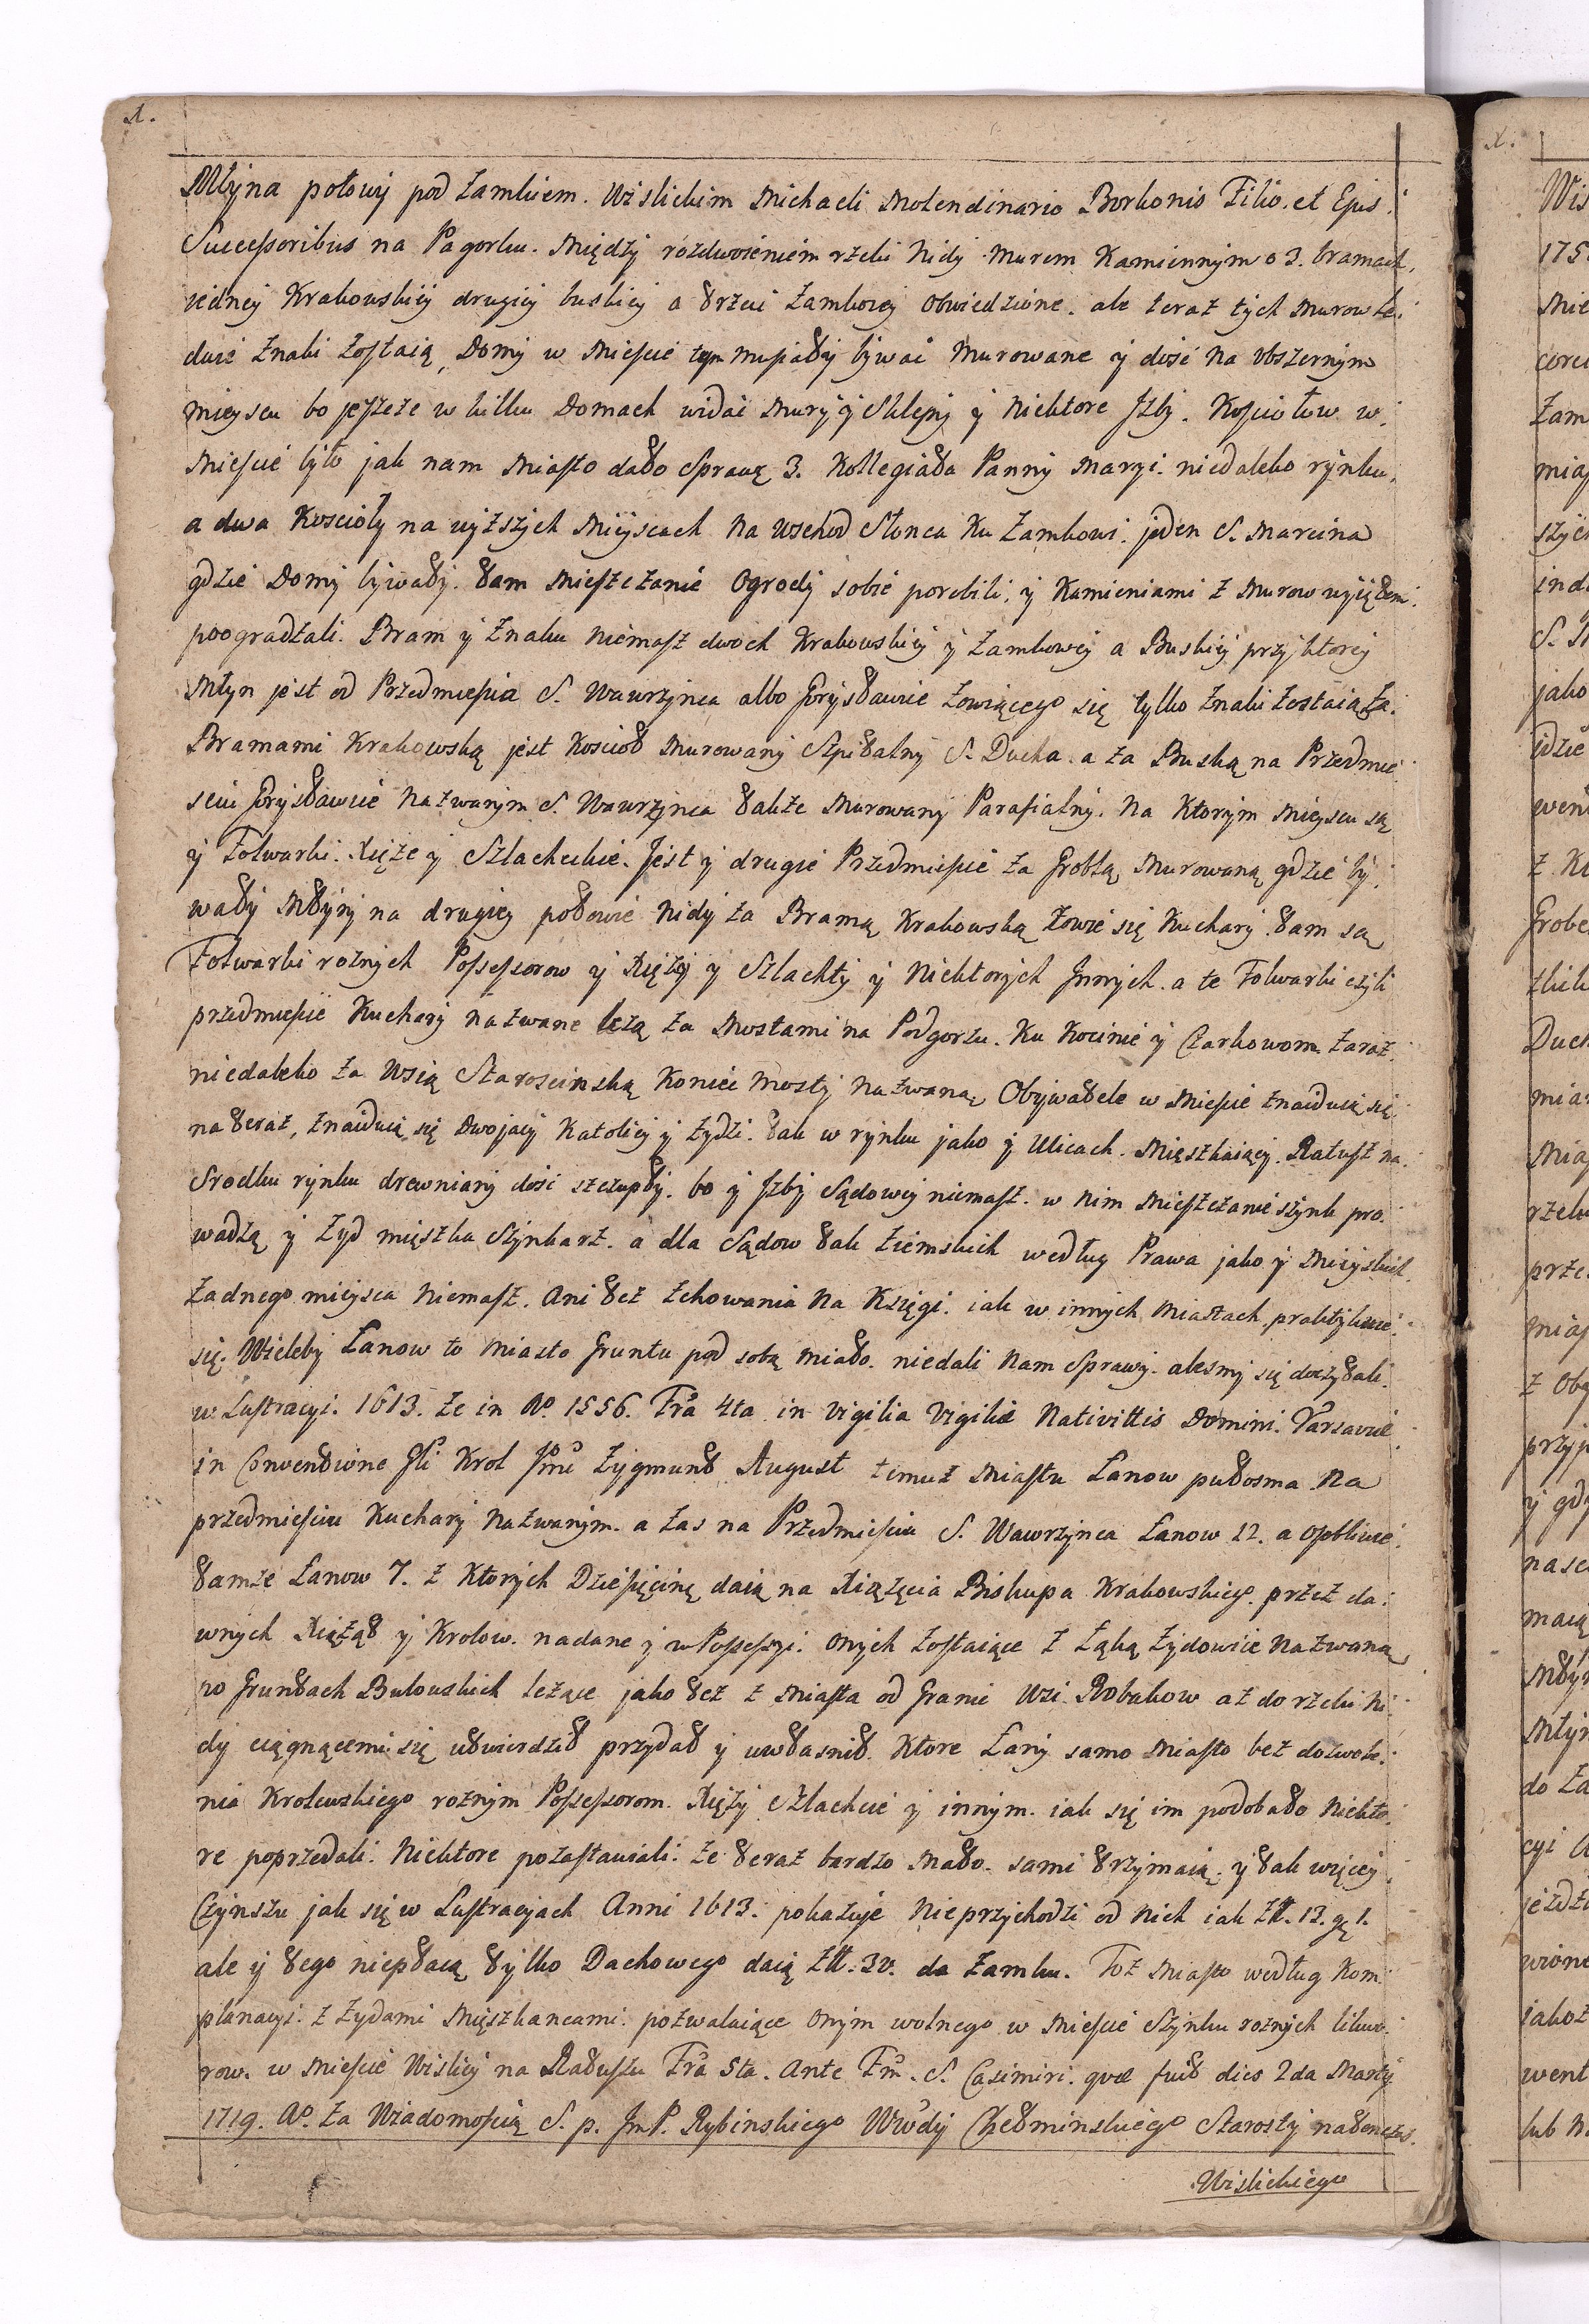 Młyna połowy pod Zamkiem. Wislickim Michaeli Molendinario Borkonis Filio. et Ejus.
Successoribus na Pagorku. Między rozdwoieniem rzeki Nidy Murem Kamiennym o 3. bramach,
iedney Krakowskiey drugiey buskiey a trzeci Zamkowey obwiedzione. ale teraz tych Murow le.
dwie Znaki Zostaią, Domy w Miescie tym musiały bywać Murowane y dość na obszernym
mieyscu bo jeszcze w kilku Domach widać Mury y Sklepy y niektore Jzby. Kosciołow w.
Miescie było jak nam Miasto dało Sprawę 3. Kollegiata Panny Maryi. niedaleko rynku,
a dwa Koscioły na wyższych Mieyscach na wschod Słonca Ku Zamkowi. jeden S. Marcina
gdzie Domy bywały. tam Mieszczanie Ogrody sobie porobili, y Kamieniami z Murow wyjętemi.
poogradzali. Bram y Znaku niemasz dwoch Krakowskiey y Zamkowey a Buskiey przy ktorey
Młyn jest od Przedmiescia S. Wawrzynca albo Gorysławie Zowiącego się tylko Znaki Zostaią Za.
Bramami Krakowską jest Koscioł Murowany Szpitalny S. Ducha. a za Buską na Przedmie.
sciu Gorysławcie Nazwanym S. Wawrzynca także Murowany Parafialny. Na Ktorym Mieyscu są
y Folwarki. Xięże y Szlacheckie. Jest y drugie Przedmiescie za Groblą Murowaną gdzie by.
wały Młyny na drugiey połowie Nidy za Bramą Krakowską Zowie się Kuchary. tam są
Folwarki roznych Possessorow y Xięży y Szlachty y Niektorych Jnnych. a te Folwarki czyli
przedmiescie Kuchary nazwane leżą za Mostami na Podgorzu. Ku Kocinie y Czarkowom. zaraz.
niedaleko za Wsią Staroscinską Koniec Mosty Nazwaną, Obywatele w Miescie znaiduią się.
na teraz, znaiduią się Dwojacy Katolicy y Zydzi. tak w rynku jako y Ulicach. Mięszkaiący. Ratusz na.
Srodku rynku drewniany dość szczupły. bo y Jzby Sądowey niemasz. w Nim Mieszczanie szynk pro.
wadzą y Zyd mięszka Szynkarz. a dla Sądow tak Ziemskich według Prawa jako y Mieyskich.
Zadnego mieysca niemasz. Ani też zchowania na Księgi. iak w innych Miastach, praktykuie.
się. Wieleby Łanow to Miasto Gruntu pod sobą miało. niedali nam Sprawy. alesmy się doczytali.
w Lustracyi. 1613. że in Ao. 1556. Fra 4ta in Vigilia Vigiliæ Nativittis Domini. Varsaviæ
in Conventione Gli Krol Jmć Zygmunt August temuż Miastu Łanow pułosma Na
przedmiesciu Kuchary Nazwanym. a zas na Przedmiesciu S. Wawrzynca Łanow 12. a osobliwie.
tamże Łanow 7. z Ktorych Dziesięcinę daią na Xiążęcia Biskupa Krakowskiego. przez da.
wnych Xiążąt y Krolow. nadane y w Possessyi. onych zostaiące z Łąką Zydowice Nazwaną,
po Gruntach Bulowskich leżące jako też z Miasta od Granic Wsi Robakow aż do rzeki Ni.
dy ciągnącemi się utwierdził przydał y uwłasnił. Ktore Łany samo Miasto bez dozwole.
nia Krolewskiego roznym Possessorom. Xięży Szlachcie y innym. iak się im podobało Niekto.
re poprzedali. Niektore pozastawiali. że teraz bardzo Mało. sami trzymaią. y tak więcey.
Czynszu jak się w Lustracyach Anni 1613. pokazuje Nieprzychodzi od Nich iak Złł. 13. g. 1.
ale y tego niepłacą tylko Dachowego daią Złł. 30. do Zamku. Toż Miasto według Kom.
planacyi. z Zydami Mięszkancami. pozwalaiące onym wolnego w Miescie Szynku roznych likwo.
row. w Miescie Wislicy na Ratuszu Fra 5ta. Ante Fm. S. Casimiri. quæ fuit dies 2da Martij
1719. Ao. Za Wiadomością S. p. JmP. Rybinskiego Wwdy Chełminskiego Starosty natenczas.
Wislickiego